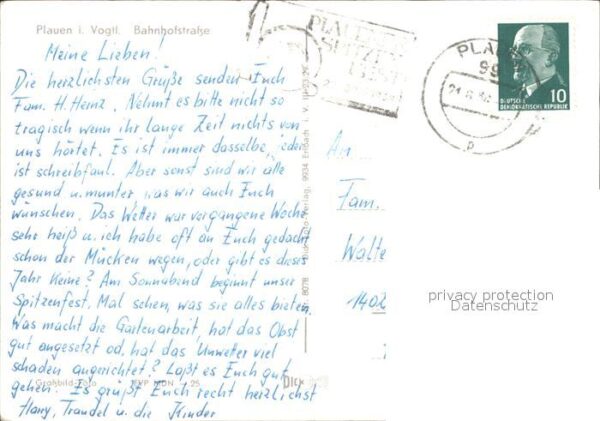 Plauen i. Vogtl. Bahnhofstraße
Meine Lieben!
Die herzlichsten Grüße senden Euch
Fam. H. Heinz. Nehmt es bitte nicht so
tragisch wenn ihr lange Zeit nichts von
uns hörtet. Es ist immer dasselbe, jeder
ist schreibfaul. Aber sonst sind wir alle
gesund u. munter, was wir auch Euch
wünschen. Das Wetter war vergangene Woche
sehr heiß u. ich habe oft an Euch gedacht
schon der Mücken wegen, oder gibt es dieses
Jahr keine? Am Sonnabend beginnt unser
Spitzenfest. Mal sehen, was sie alles bieten.
Was macht die Gartenarbeit, hat das Obst
gut angesetzt od. hat das Unwetter viel
schaden angerichtet? Laßt es Euch gut
gehen. Es grüßt Euch recht herzlichst
Harry, Traudel u. die Kinder
Großbild-Foto
PLAUENER
SPITZEN
FEST
PLAUEN
99
DEUTSCHE
DEMOKRATISCHE REPUBLIK
10
An
Fam.
Walte
1402
privacy protection
Datenschutz